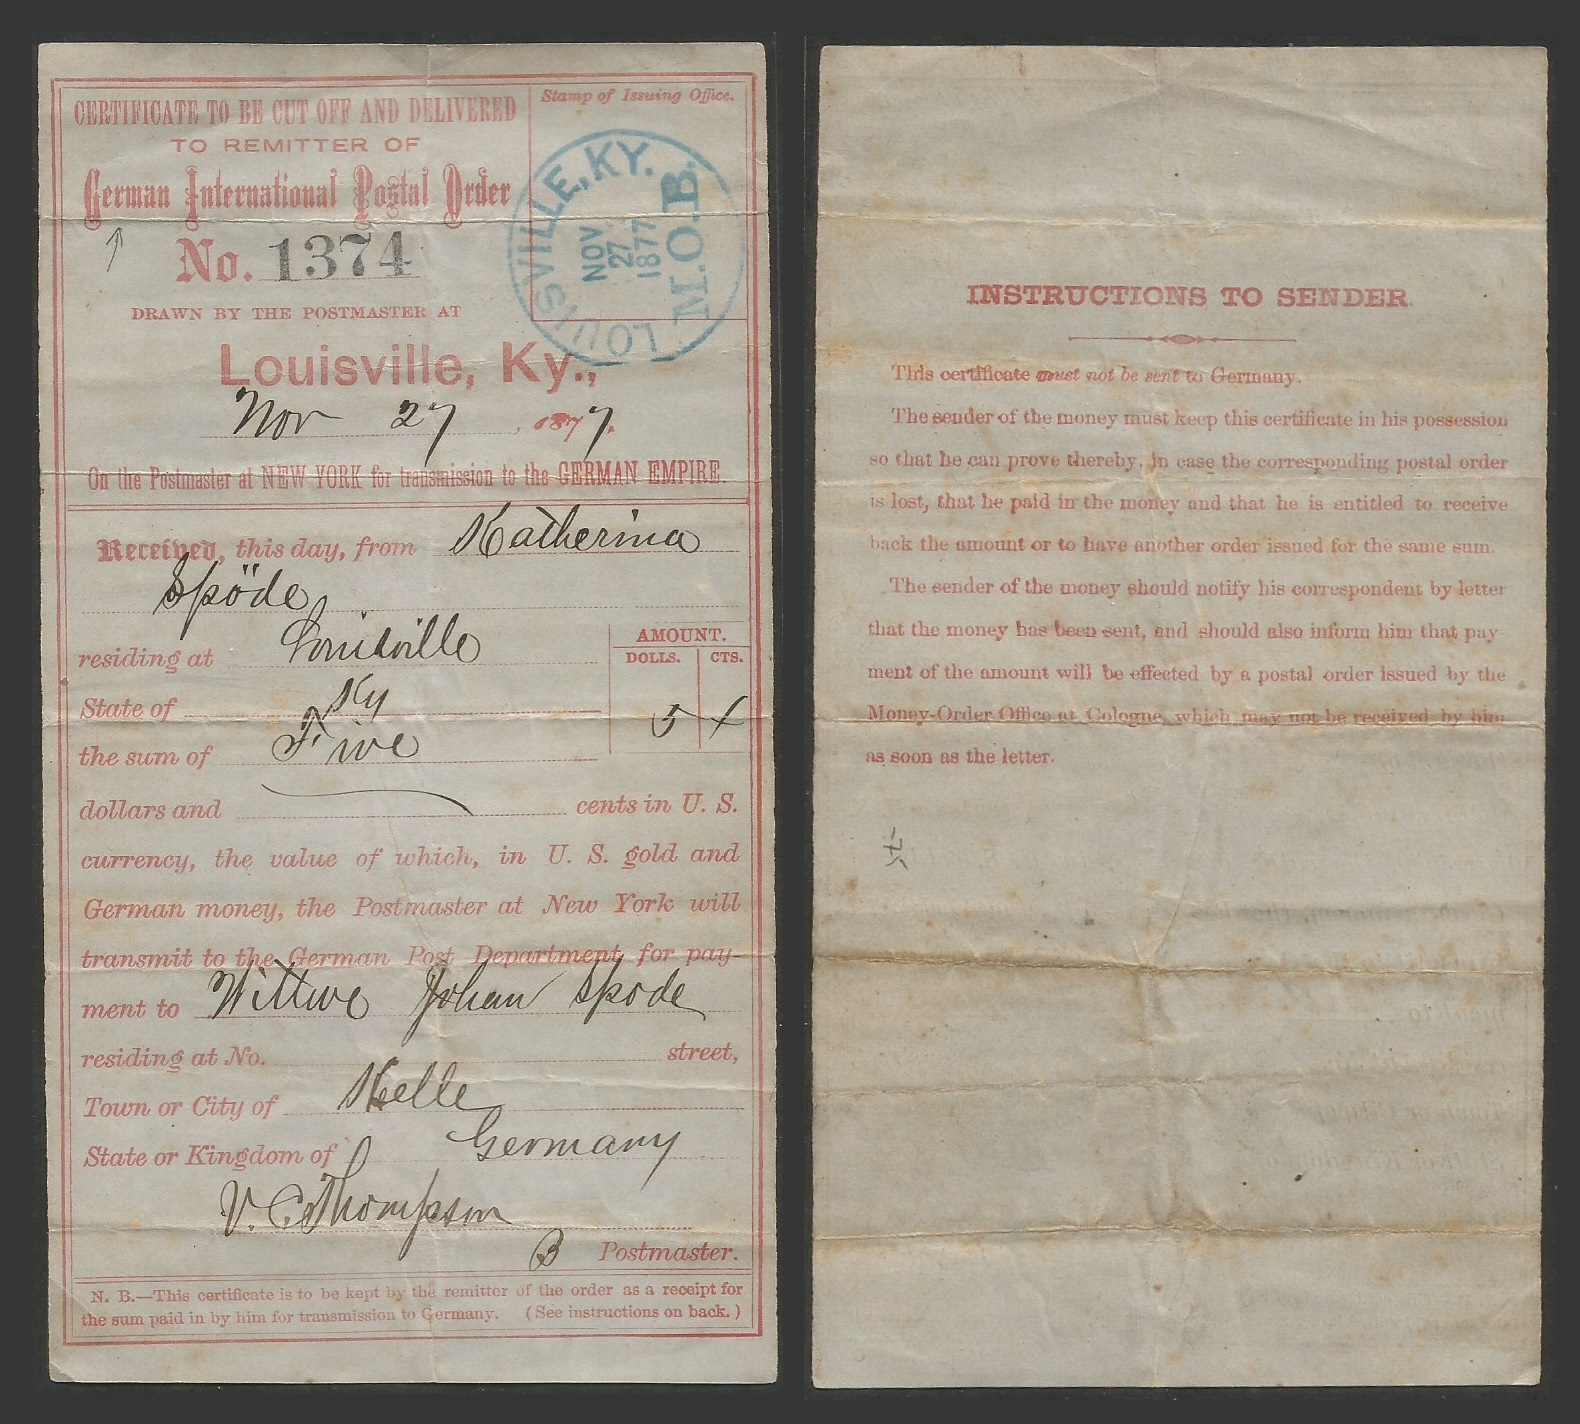 CERTIFICATE TO BE CUT OFF AND DELIVERED
TO REMITTER OF
German International Postal Order
No. 1374
Stamp of Issuing Office.
LOUISVILLE, KY.
NOV
27
1877
M.O.B.
DRAWN BY THE POSTMASTER AT
Louisville, Ky.,
Nov 27, 1877.
On the Postmaster at NEW YORK for transmission to the GERMAN EMPIRE.
Received, this day, from Katherina
Spöde
residing at Louisville
State of Ky
the sum of Five
AMOUNT.
DOLLS. CTS.
5
dollars and cents in U. S.
currency, the value of which, in U. S. gold and
German money, the Postmaster at New York will
transmit to the German Post Department, for pay-
ment to Wittwe Johan Spode
residing at No. street,
Town or City of Helle
State or Kingdom of Germany
V. C. Thompson
B Postmaster.
N. B.—This certificate is to be kept by the remitter of the order as a receipt for
the sum paid in by him for transmission to Germany. (See instructions on back.)
INSTRUCTIONS TO SENDER.
This certificate must not be sent to Germany.
The sender of the money must keep this certificate in his possession
so that he can prove thereby, in case the corresponding postal order
is lost, that he paid in the money and that he is entitled to receive
back the amount or to have another order issued for the same sum.
The sender of the money should notify his correspondent by letter
that the money has been sent, and should also inform him that pay
ment of the amount will be effected by a postal order issued by the
Money-Order Office at Cologne, which may not be received by him
as soon as the letter.